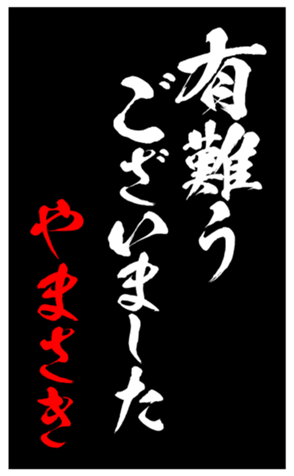 有難う
ございました
やまさき